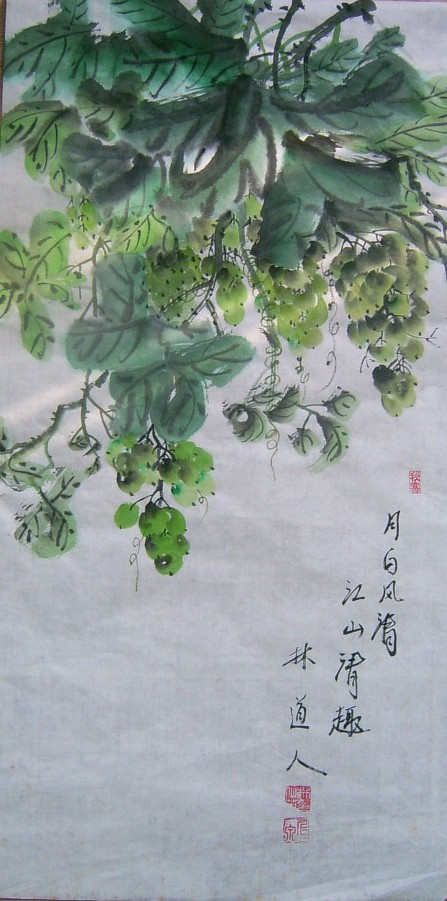 月白风清
江山清趣
林道人